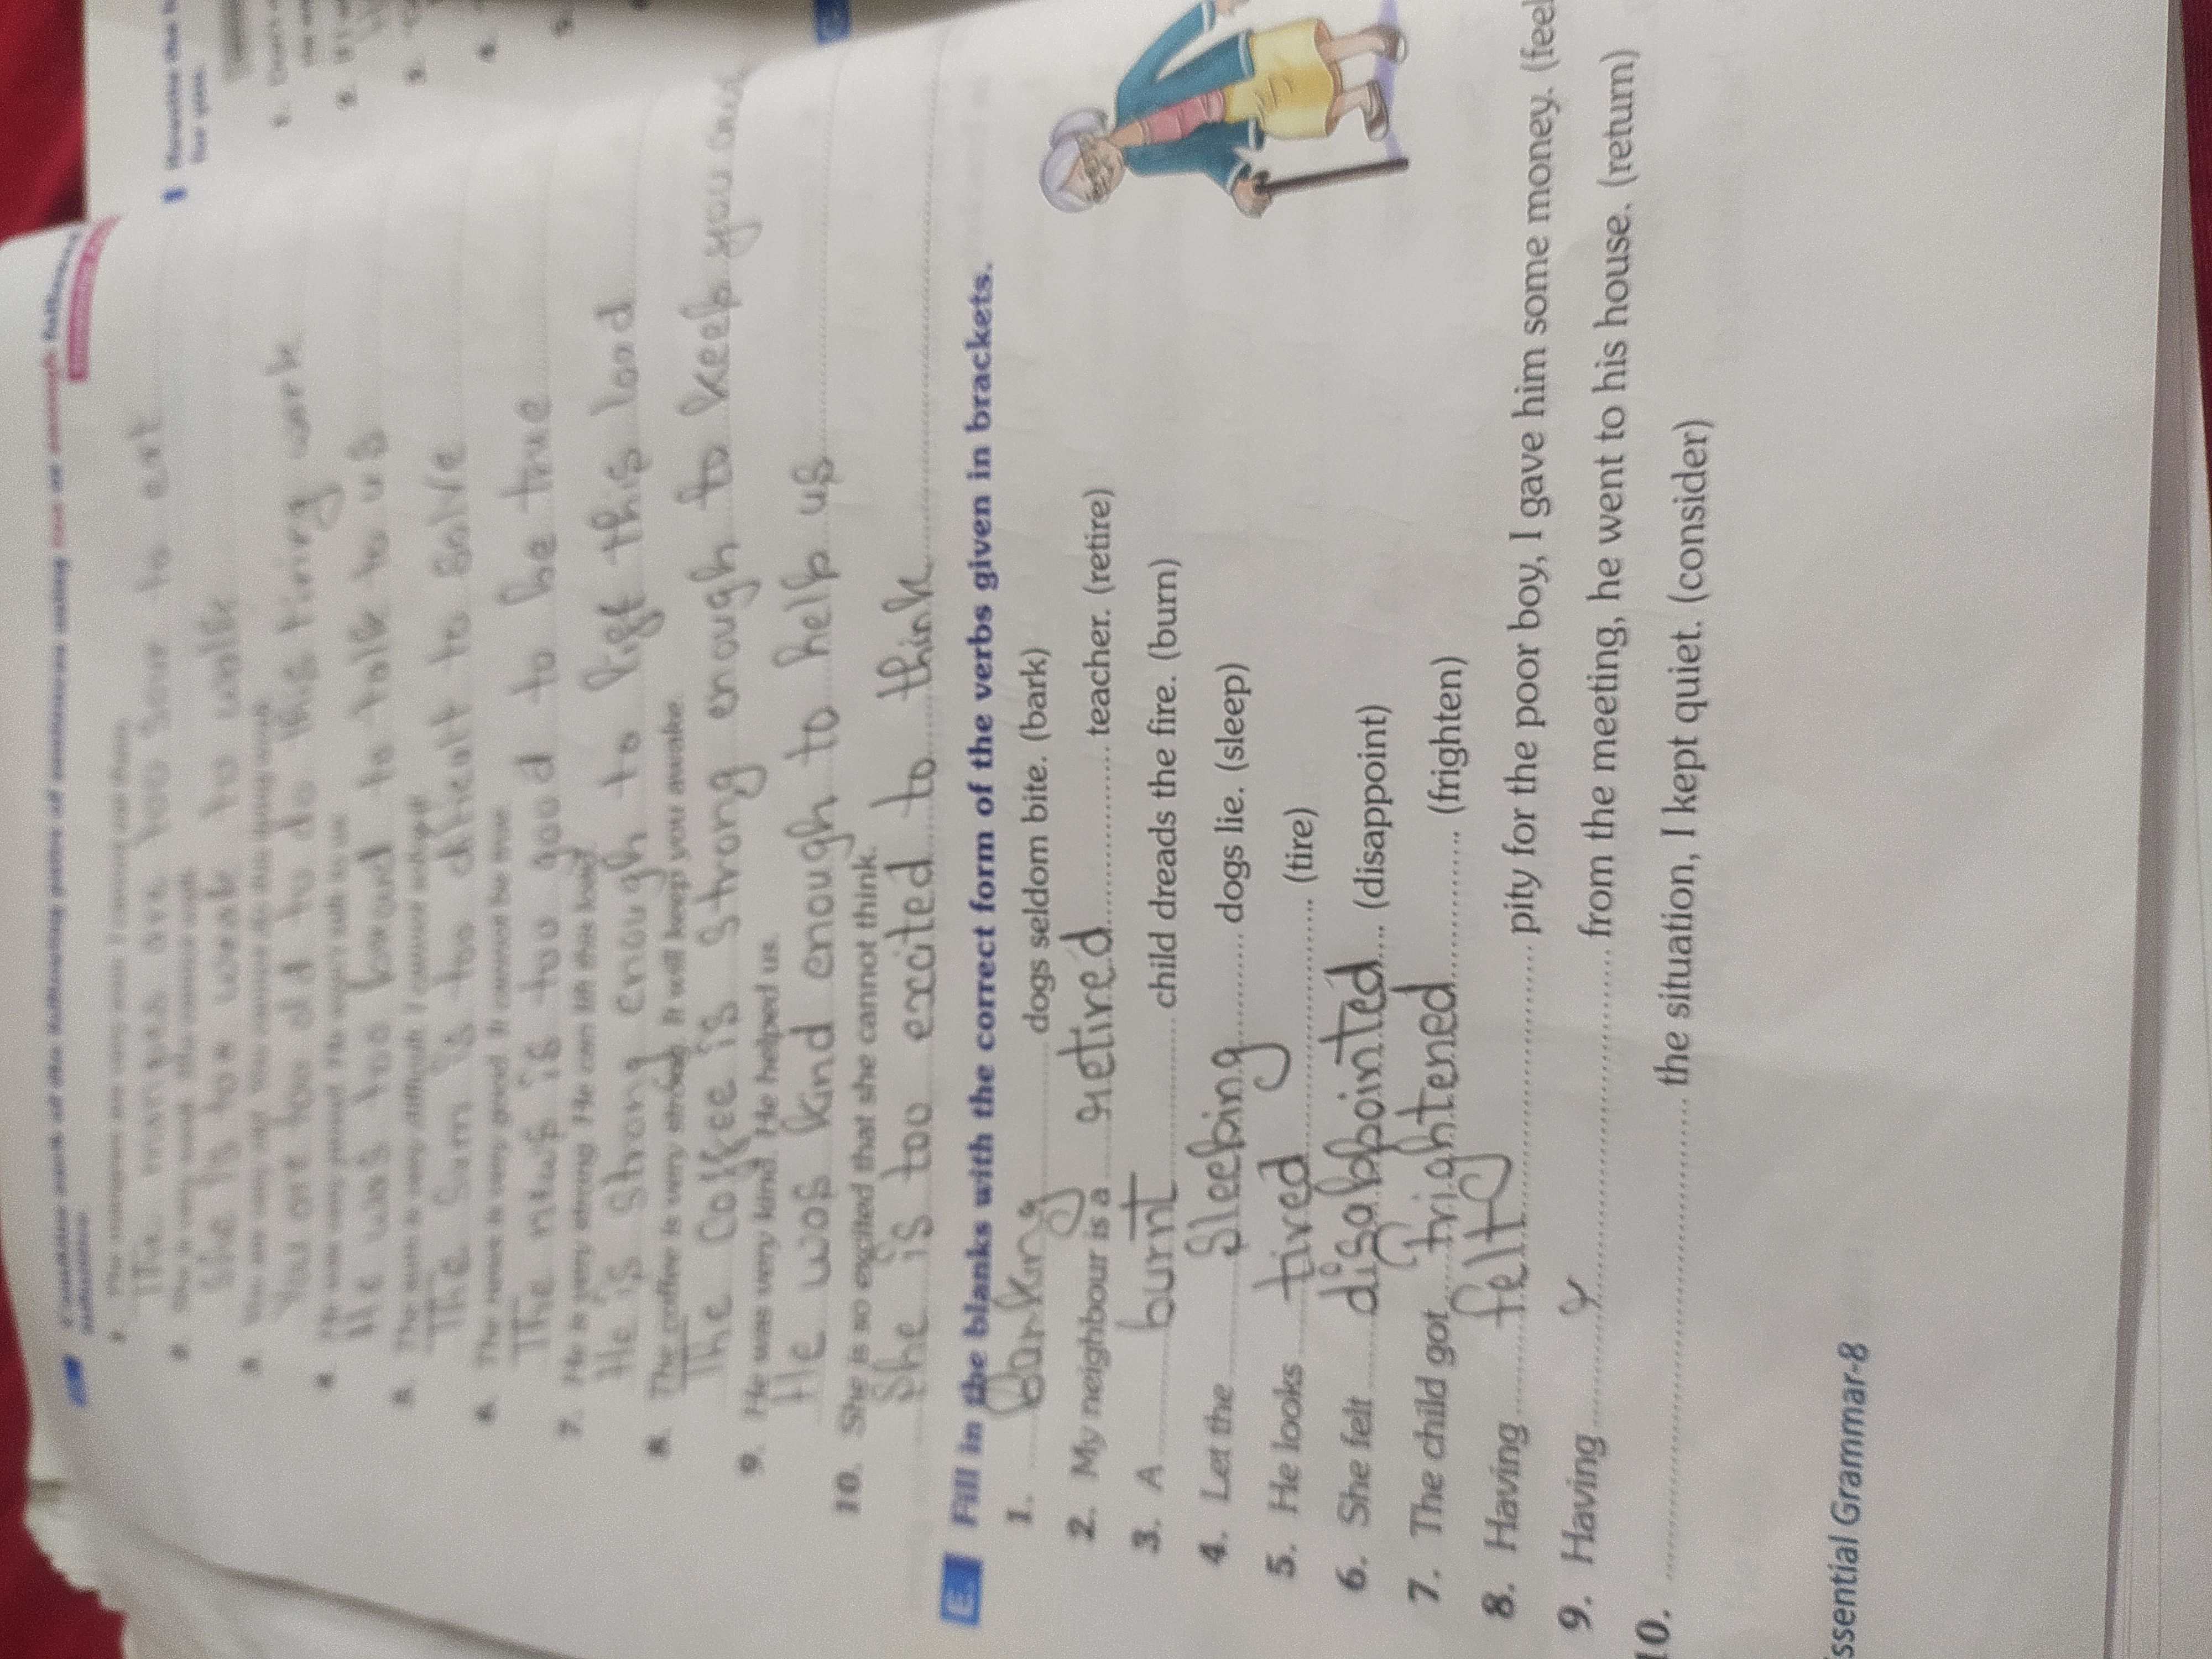 Combine each of the following pairs of sentences using too or enough followed
infinitive.
1. The mangoes are very sour. I cannot eat them.
The mangoes are too sour to eat
2. She is very weak. She cannot walk.
She is too weak to walk
3. You are very old. You cannot do this tiring work.
You are too old to do this tiring work
4. He was very proud. He won't talk to us.
He was too to talk to us
5. The sum is very difficult. I cannot solve it.
The Sum is too to solve
6. The news is very good. It cannot be true.
The news is too good to be true
7. He is very strong. He can lift this load.
He is strong enough to lift this load
8. The coffee is very strong. It will keep you awake.
The coffee is strong enough to keep you
9. He was very kind. He helped us.
He was kind enough to help us
10. She is so excited that she cannot think.
She is too excited to think
E. Fill in the blanks with the correct form of the verbs given in brackets.
1. Barking dogs seldom bite. (bark)
2. My neighbour is a retired teacher. (retire)
3. A burnt child dreads the fire. (burn)
4. Let the Sleeping dogs lie. (sleep)
5. He looks tired (tire)
6. She felt disappointed (disappoint)
7. The child got frightened (frighten)
8. Having felt pity for the poor boy, I gave him some money. (feel
9. Having from the meeting, he went to his house. (return)
10. the situation, I kept quiet. (consider)
ssential Grammar-8